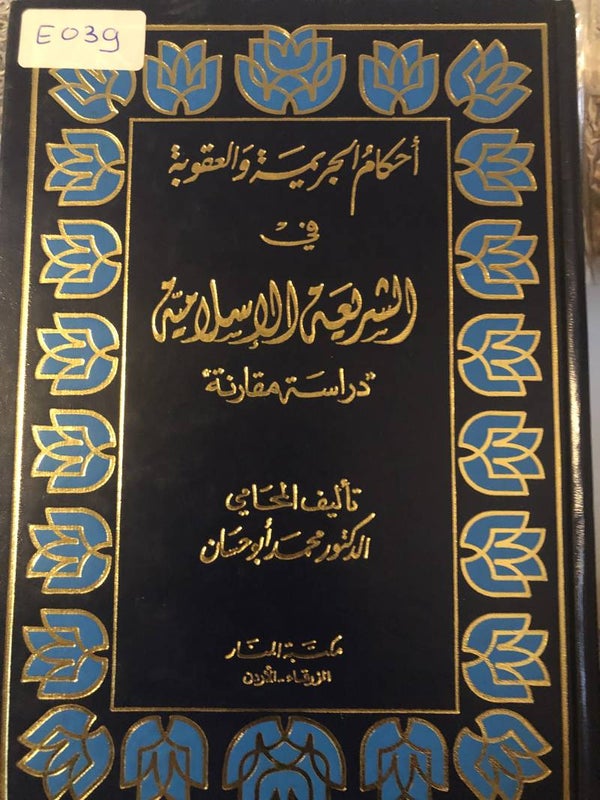 E039
أحكام الجريمة والعقوبة
في
الشريعة الإسلامية
"دراسة مقارنة"
تأليف المحامي
الدكتور محمد أبو حسان
مكتبة المنار
الزرقاء - الأردن